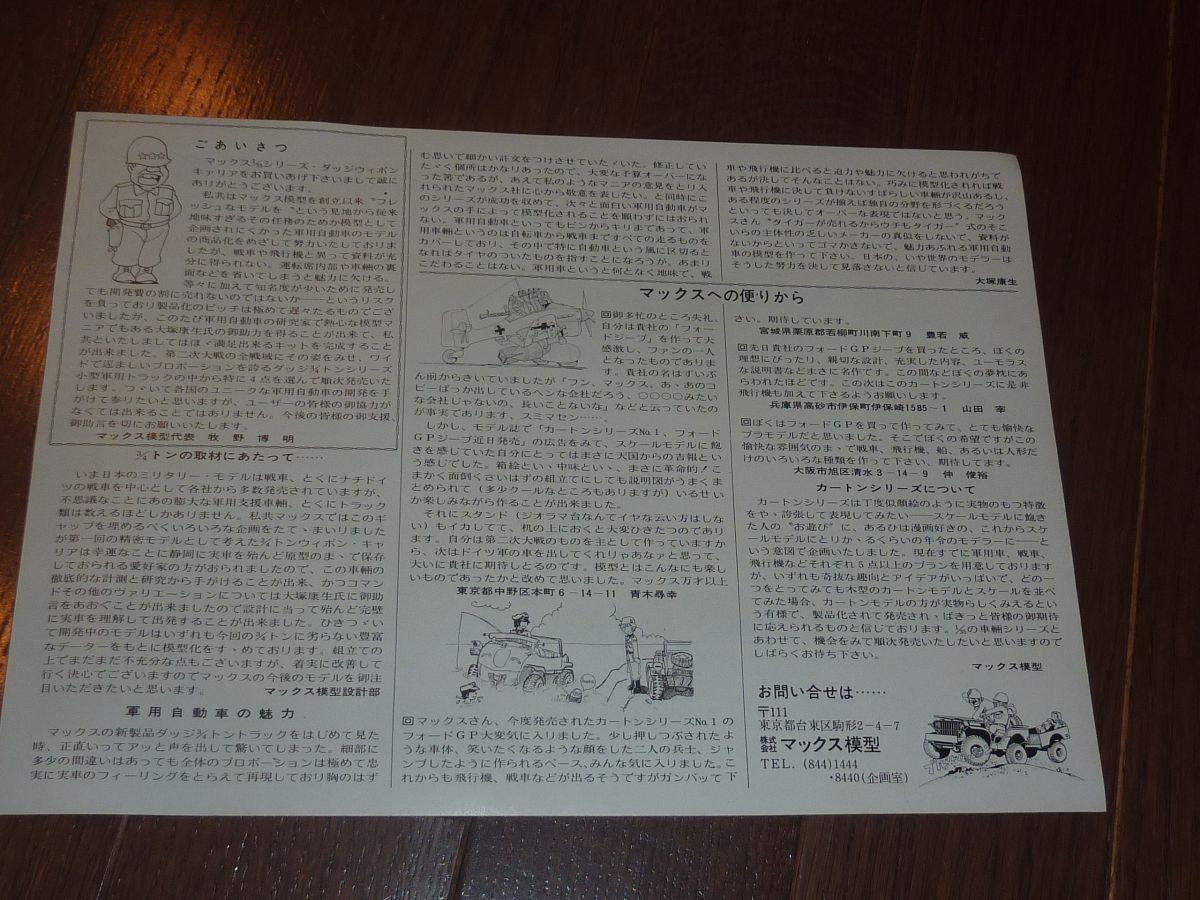 ごあいさつ
マックス1/35シリーズ・ダッジウィポン
キャリアをお買いあげ下さいまして誠に
ありがとうございます。
私共はマックス模型を創立以来“フレ
ッシュなモデルを”という見地から従来
地味すぎるその任務のためか模型として
企画されにくかった軍用自動車のモデル
の商品化をめざして努力いたしておりま
したが、戦車や飛行機と異って資料が充
分に得られない。運転席内部や車輛の裏
面などを省いてしまうと魅力に欠ける。
等々に加えて知名度が少いために発売し
ても開発費の割に売れないのではないか──というリスク
を負っており製品化のピッチは極めて遅々たるものでござ
いましたが、このたび軍用自動車の研究家で熱心な模型マ
ニアでもある大塚康生氏の御助力を得ることが出来て、私
共といたしましてはほゞ満足出来るキットを完成すること
が出来ました。第二次大戦の全戦域にその姿をみせ、ワイ
ドで逞ましいプロポーションを誇るダッジ3/4トンシリーズ
小型軍用トラックの中から特に4点を選んで順次発売いた
します。つゞいて各国のユニークな軍用自動車の開発を手
がけて参りたいと思いますが、ユーザーの皆様の御協力が
なくては出来ることではありません。今後の皆様の御支援、
御助言を切にお願いいたします。
マックス模型代表 牧野博明
3/4トンの取材にあたって……
いま日本のミリタリー・モデルは戦車、とくにナチドイ
ツの戦車を中心として各社から多数発売されていますが、
不思議なことにあの膨大な軍用支援車輛、とくにトラック
類は数えるほどしかありません。私共マックスではこのギ
ャップを埋めるべくいろいろな企画をたてゝまいりました
が第一回の精密モデルとして考えた3/4トンウィポン・キャ
リアは幸運なことに静岡に実車を殆んど原型のまゝで保存
しておられる愛好家の方がおられましたので、この車輛の
徹底的な計測と研究から手がけることが出来、かつコマン
ドその他のヴァリエーションについては大塚康生氏に御助
言をあおぐことが出来ましたので設計に当って殆んど完璧
に実車を理解して出発することが出来ました。ひきつゞい
て開発中のモデルはいずれも今回の3/4トンに劣らない豊富
なデーターをもとに模型化をすゝめております。組立ての
上でまだまだ不充分な点もございますが、着実に改善して
行く決心でございますのでマックスの今後のモデルを御注
目いただきたいと思います。 マックス模型設計部
軍用自動車の魅力
マックスの新製品ダッジ3/4トントラックをはじめて見た
時、正直いってアッと声を出して驚いてしまった。細部に
多少の間違いはあっても全体のプロポーションは極めて忠
実に実車のフィーリングをとらえて再現しており胸のはず
む思いで細かい註文をつけさせていたゞいた。修正してい
たゞく個所はかなりあったので、大変な予算オーバーにな
った筈であるが、あえて私のようなマニアの意見をとり入
れられたマックス社に心から敬意を表したい。と同時にこ
のシリーズが成功を収めて、次々と面白い軍用自動車がマ
ックスの手によって模型化されることを願わずにはおられ
ない。軍用自動車といってもピンからキリまであって、軍
用車輛というのは自転車から戦車まですべての走るものを
カバーしており、その中で特に自動車という風に区切ると
なればタイヤのついたものを指すことになろうが、あまり
こだわることはない。軍用車というと何となく地味で、戦
車や飛行機に比べると迫力や魅力に欠けると思われがちで
あるが決してそんなことはない。巧みに模型化されれば戦
車や飛行機に決して負けないすばらしい車輛が沢山あるし、
ある程度のシリーズが揃えば独自の分野を形づくるだろう
といっても決してオーバーな表現ではないと思う。マック
スさん“タイガーが売れるからウチもタイガー”式のそこ
いらの主体性の乏しいメーカーの真似をしないで、資料が
ないからといってゴマかさないで、魅力あふれる軍用自動
車の模型を作って下さい。日本の、いや世界のモデラーは
そうした努力を決して見落さないと信じています。
大塚康生
マックスへの便りから
回御多忙のところ失礼、
自分は貴社の「フォー
ドジープ」を作って大
感激し、ファンの一人
となったものでありま
す。貴社の名はずいぶ
ん前からきいていましたが「フン、マックス、あゝあのコ
ピーばっか出しているヘンな会社だろう、○○○○みたい
な会社じゃないの、長いことないな」などと云っていたの
が事実であります、スミマセン……。
しかし、モデル誌で「カートンシリーズNo.1、フォード
GPジープ近日発売」の広告をみて、スケールモデルに飽
きを感じていた自分にとってはまさに天国からの吉報とい
う感じでした。箱絵といゝ中味といゝ、まさに革命的！こ
まかく面倒くさいはずの組立てにしても説明図がうまくま
とめられて(多少クールなところもありますが)いるせい
か楽しみながら作ることが出来ました。
それにスタンド(ジオラマ台なんてイヤな云い方はしな
い)もイカしてて、机の上におくと大変ひきたつのであり
ます。自分は第二次大戦のものを主として作っていますか
ら、次はドイツ軍の車を出してくれりゃあなァと思って、
大いに貴社に期待しとるのです。模型とはこんなにも楽し
いものであったかと改めて思いました。マックス万才以上
東京都中野区本町6-14-11 青木尋幸
回マックスさん、今度発売されたカートンシリーズNo.1の
フォードGP大変気に入りました。少し押しつぶされたよ
うな車体、笑いたくなるような顔をした二人の兵士、ジャ
ンプしたように作られるベース、みんな気に入りました。こ
れからも飛行機、戦車などが出るそうですがガンバッて下
さい。期待しています。
宮城県栗原郡若柳町川南下町9 豊若 威
回先日貴社のフォードGPジープを買ったところ、ぼくの
理想にぴったり。親切な設計、充実した内容、ユーモラス
な説明書などまさに名作です。この間などぼくの夢枕にあ
らわれたほどです。この次はこのカートンシリーズに是非
飛行機も加えて下さるようお願いします。
兵庫県高砂市伊保町伊保崎1585～1 山田 宰
回ぼくはフォードGPを買って作ってみて、とても愉快な
プラモデルだと思いました。そこでぼくの希望ですがこの
愉快な雰囲気のまゝで戦車、飛行機、船、あるいは人形だ
けのいろいろな種類を作って下さい、期待してます。
大阪市旭区清水3-14-9 伸 俊裕
カートンシリーズについて
カートンシリーズは丁度似顔絵のように実物のもつ特徴
をやゝ誇張して表現してみたい──スケールモデルに飽き
た人の“お遊び”に、あるひは漫画好きの、これからスケ
ールモデルにとりかゝるくらいの年令のモデラーに──と
いう意図で企画いたしました。現在すでに軍用車、戦車、
飛行機などそれぞれ5点以上のプランを用意しております
が、いずれも奇抜な趣向とアイデアがいっぱいで、どの一
つをとってみても木型のカートンモデルとスケールを並べ
てみた場合、カートンモデルの方が実物らしくみえるとい
う有様で、製品化されて発売され、ばきっと皆様の御期待
に応えられるものと信じております。1/35の車輛シリーズと
あわせて、機会をみて順次発売いたしたいと思いますので
しばらくお待ち下さい。
マックス模型
お問い合せは……
〒111
東京都台東区駒形2-4-7
株式会社マックス模型
TEL. (844)1444
・8440(企画室)